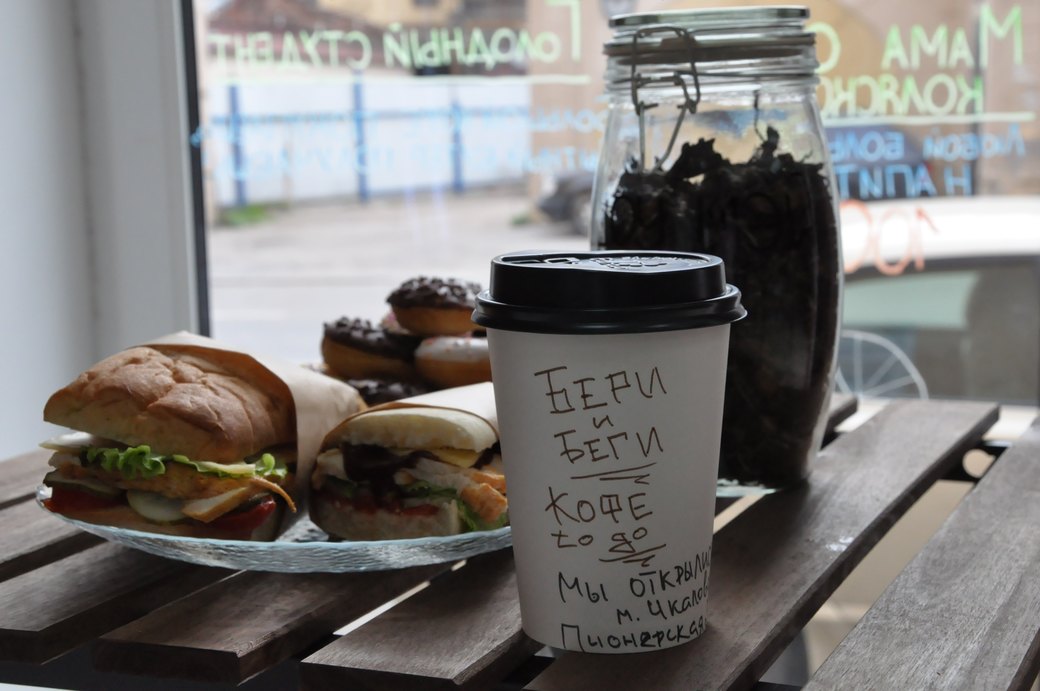 Голодный студент
Мама с
коляско
Любой боль
напит
100
БЕРИ
и
БЕГИ
КОФЕ
to go
Мы открылис
м. Чкалов
Пионерская